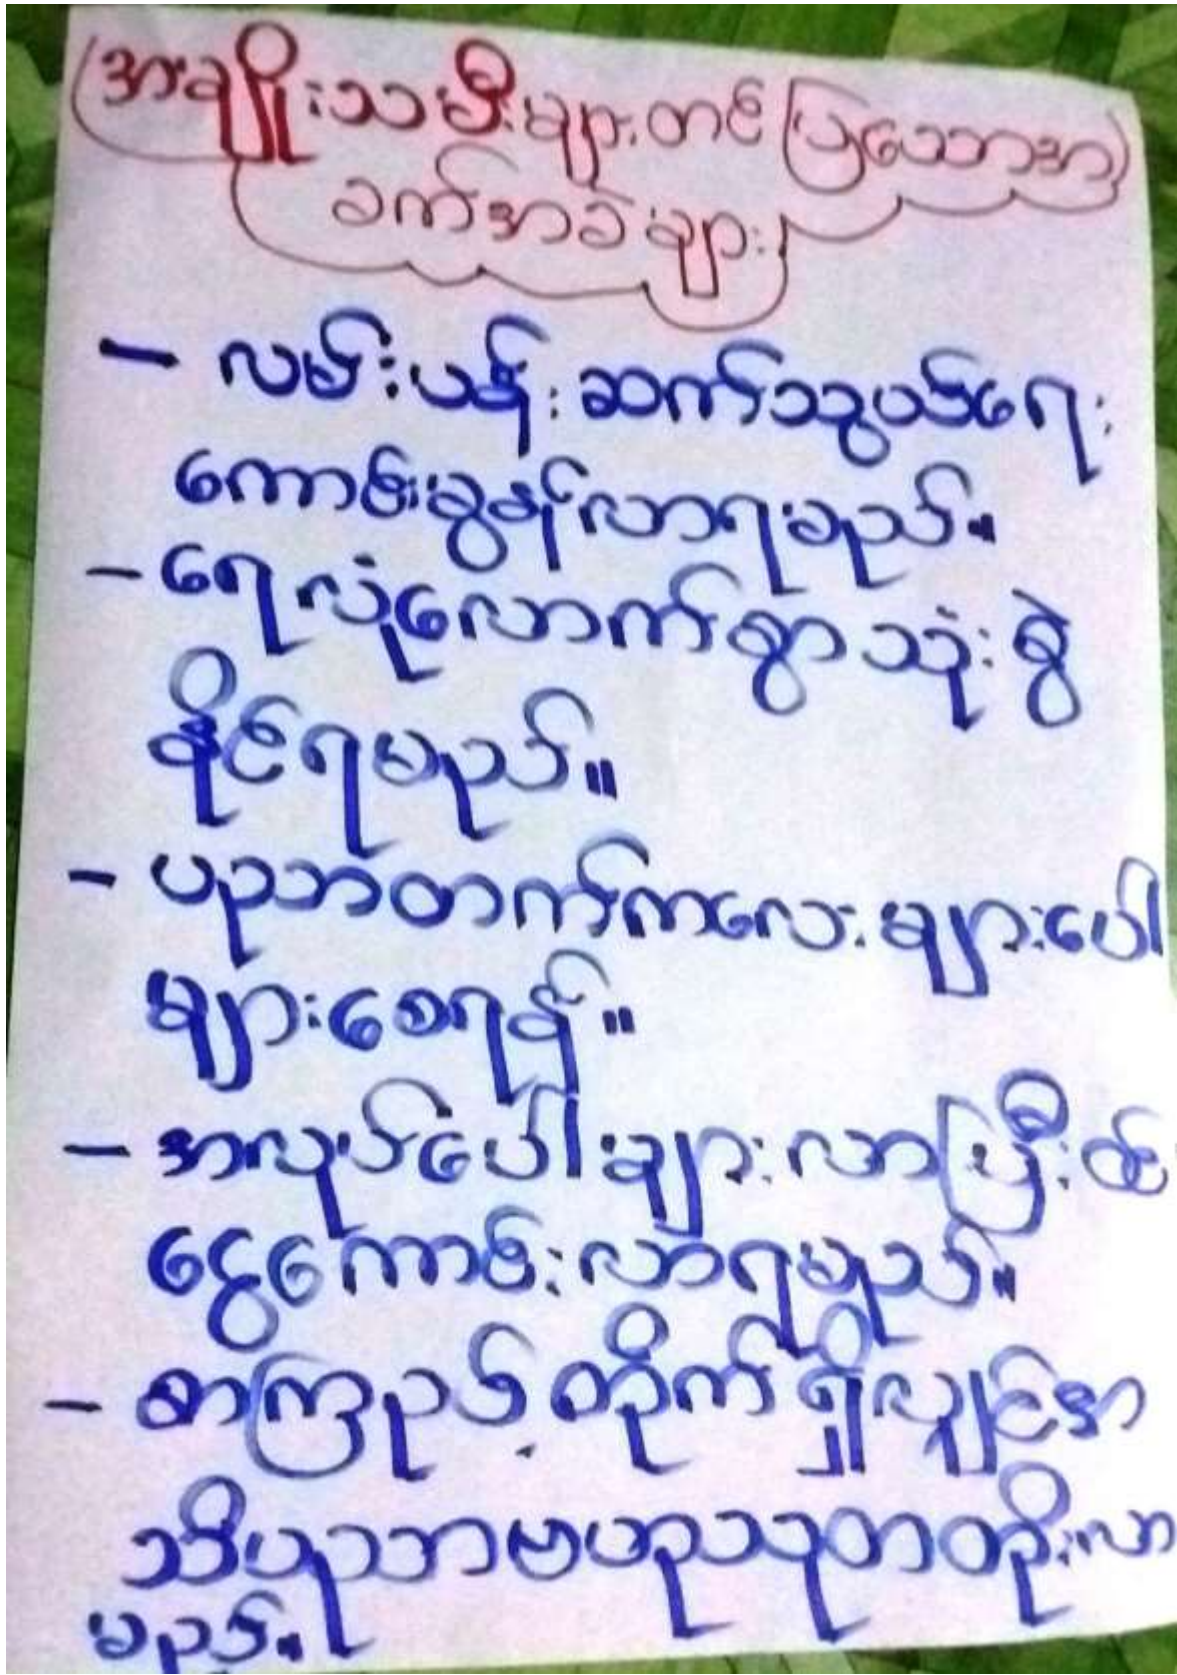 အမျိုးသမီးများတင်ပြသောအ
ခက်အခဲများ
- လမ်းပန်းဆက်သွယ်ရေး
ကောင်းမွန်လာရမည်။
- ရေလုံလောက်စွာသုံးစွဲ
နိုင်ရမည်။
- ပညာတတ်ကလေးများပေါ
များစေရန်။
- အလုပ်ပေါများလာပြီးဝင်
ငွေကောင်းလာရမည်။
- စာကြည့်တိုက်ရှိလျှင်အ
သိပညာဗဟုသုတတိုးလာ
မည်။